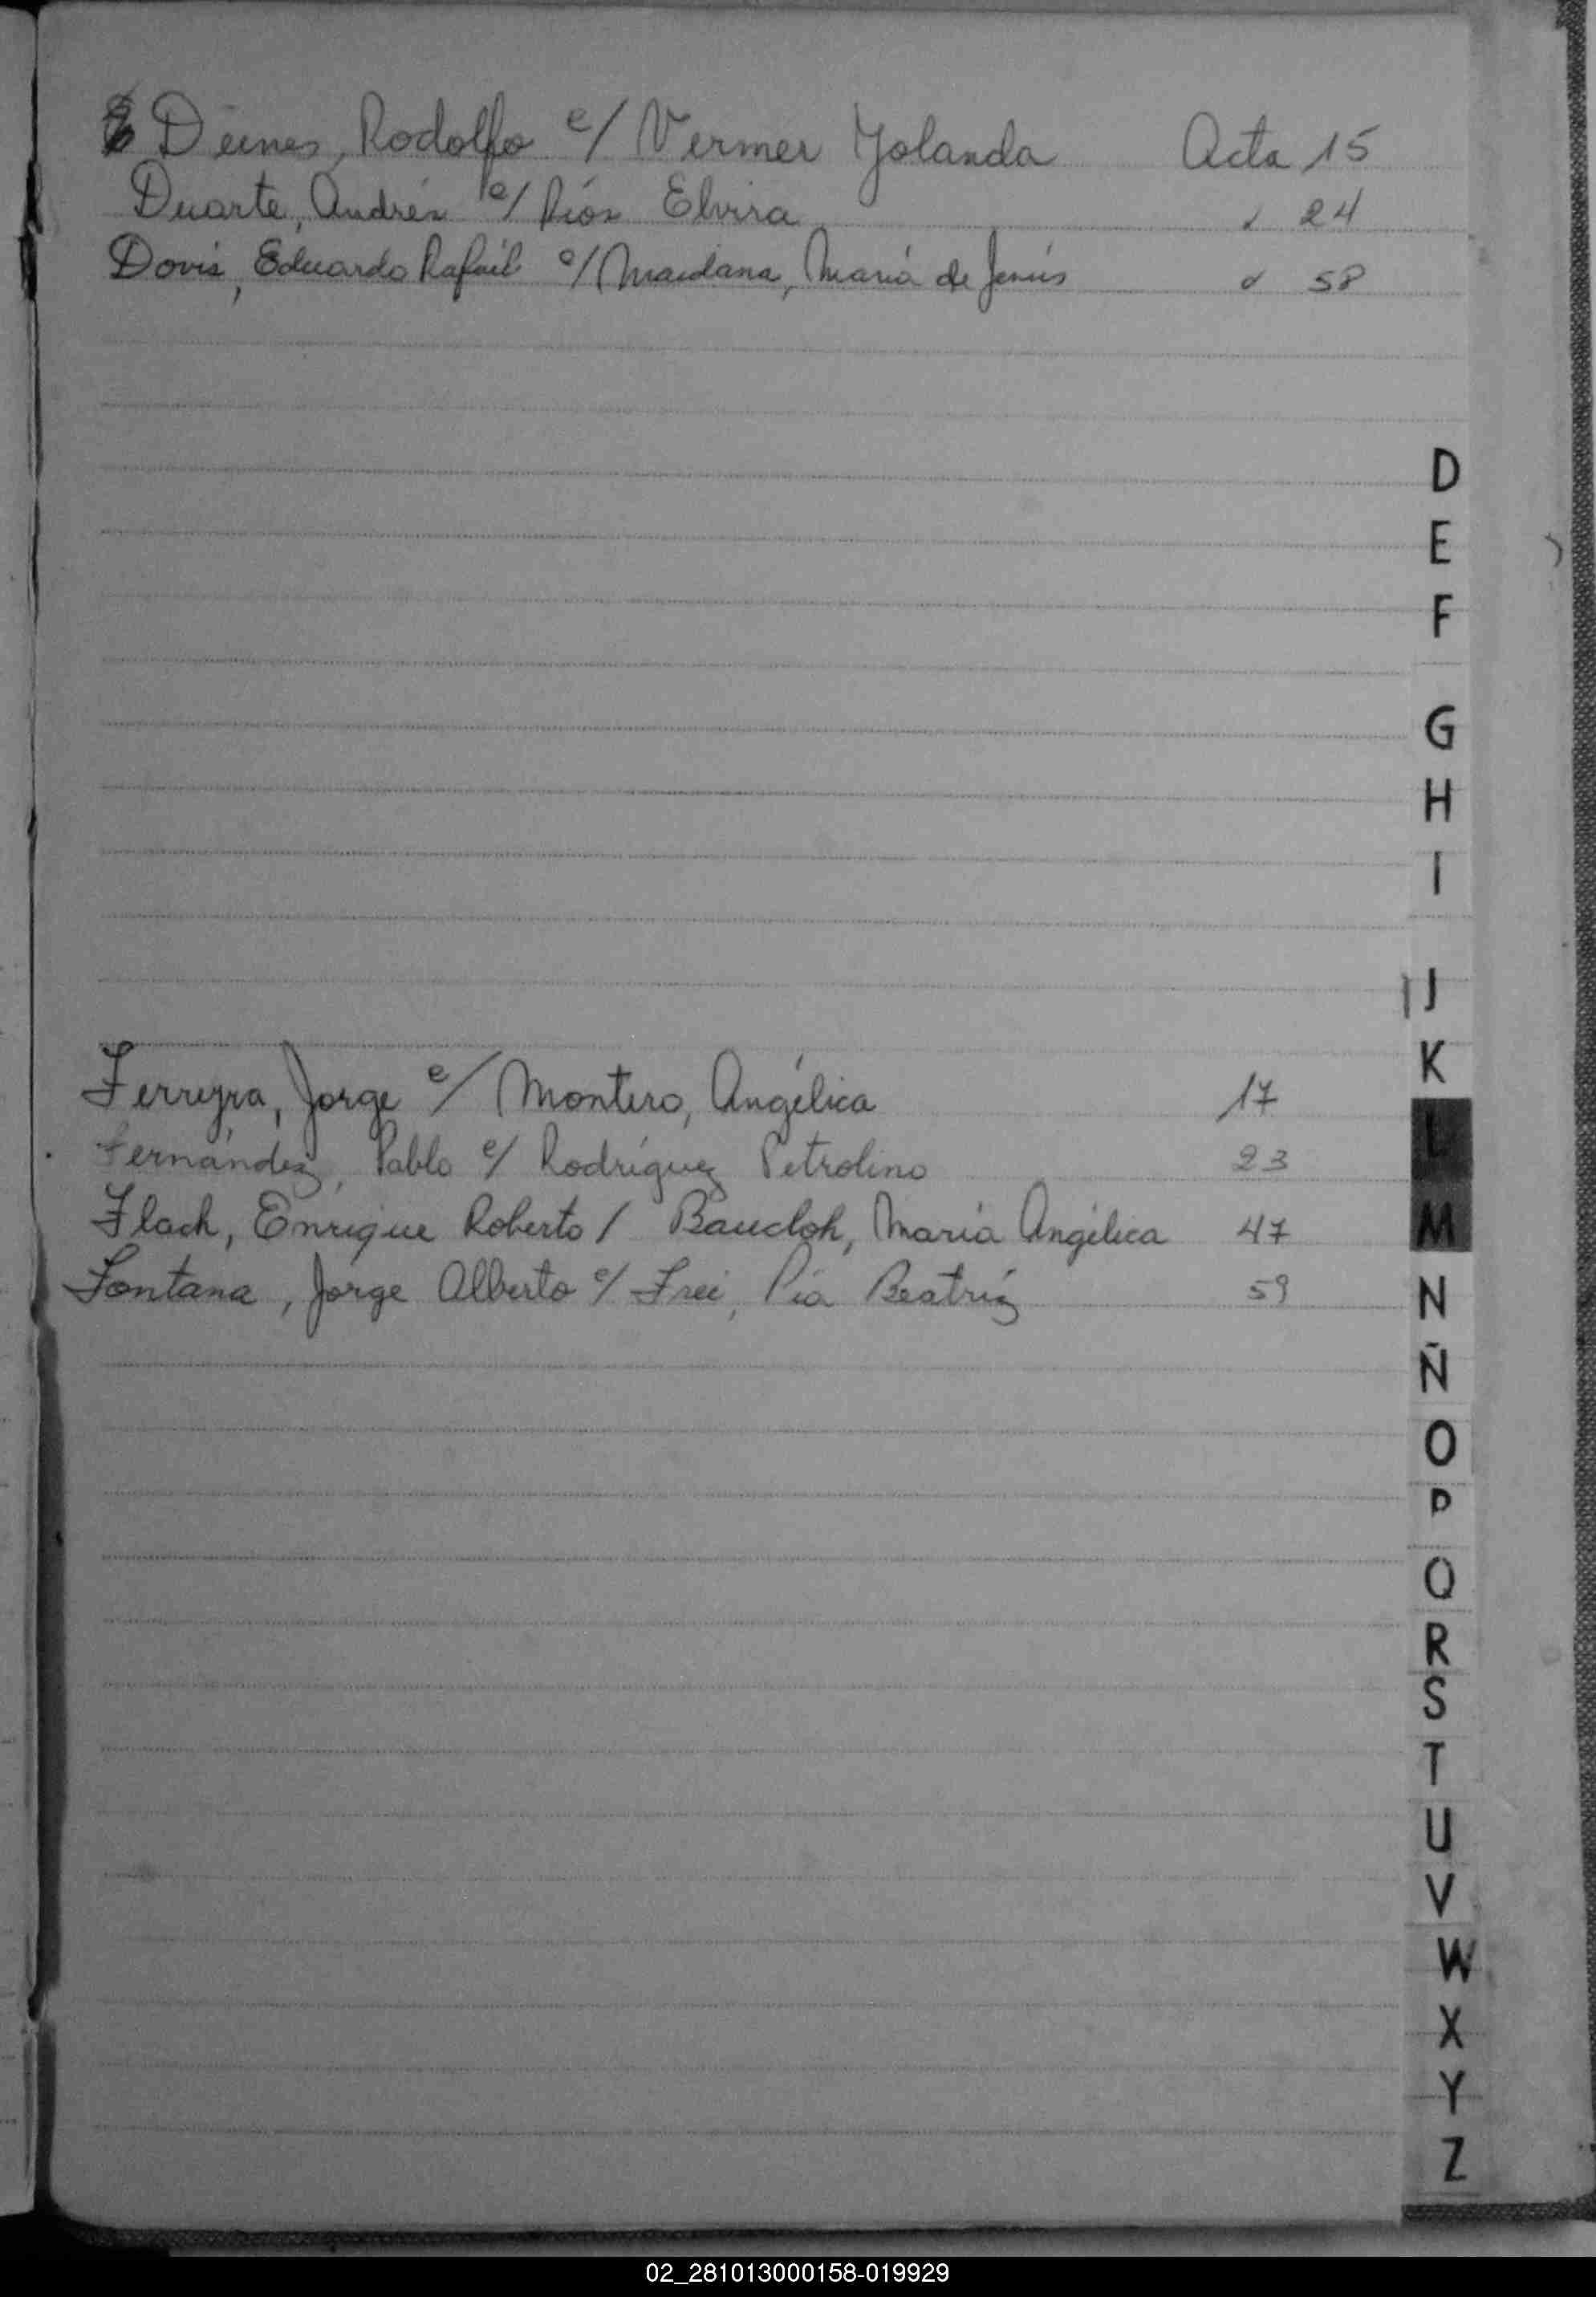 Deines, Rodolfo c/ Vermer Yolanda Acta 15
Duarte, Andrés c/ Ríos Elvira " 24
Dovis, Eduardo Rafael c/ Maidana, María de Jesús " 58
D
E
F
G
H
I
J
K
Ferreyra, Jorge c/ Montero, Angélica 17
L
Fernández, Pablo c/ Rodríguez Petrolino 23
Flach, Enrique Roberto / Baucloh, María Angélica 47
M
Fontana, Jorge Alberto c/ Frei, Pía Beatríz 59
N
Ñ
O
P
Q
R
S
T
U
V
W
X
Y
Z
02_281013000158-019929